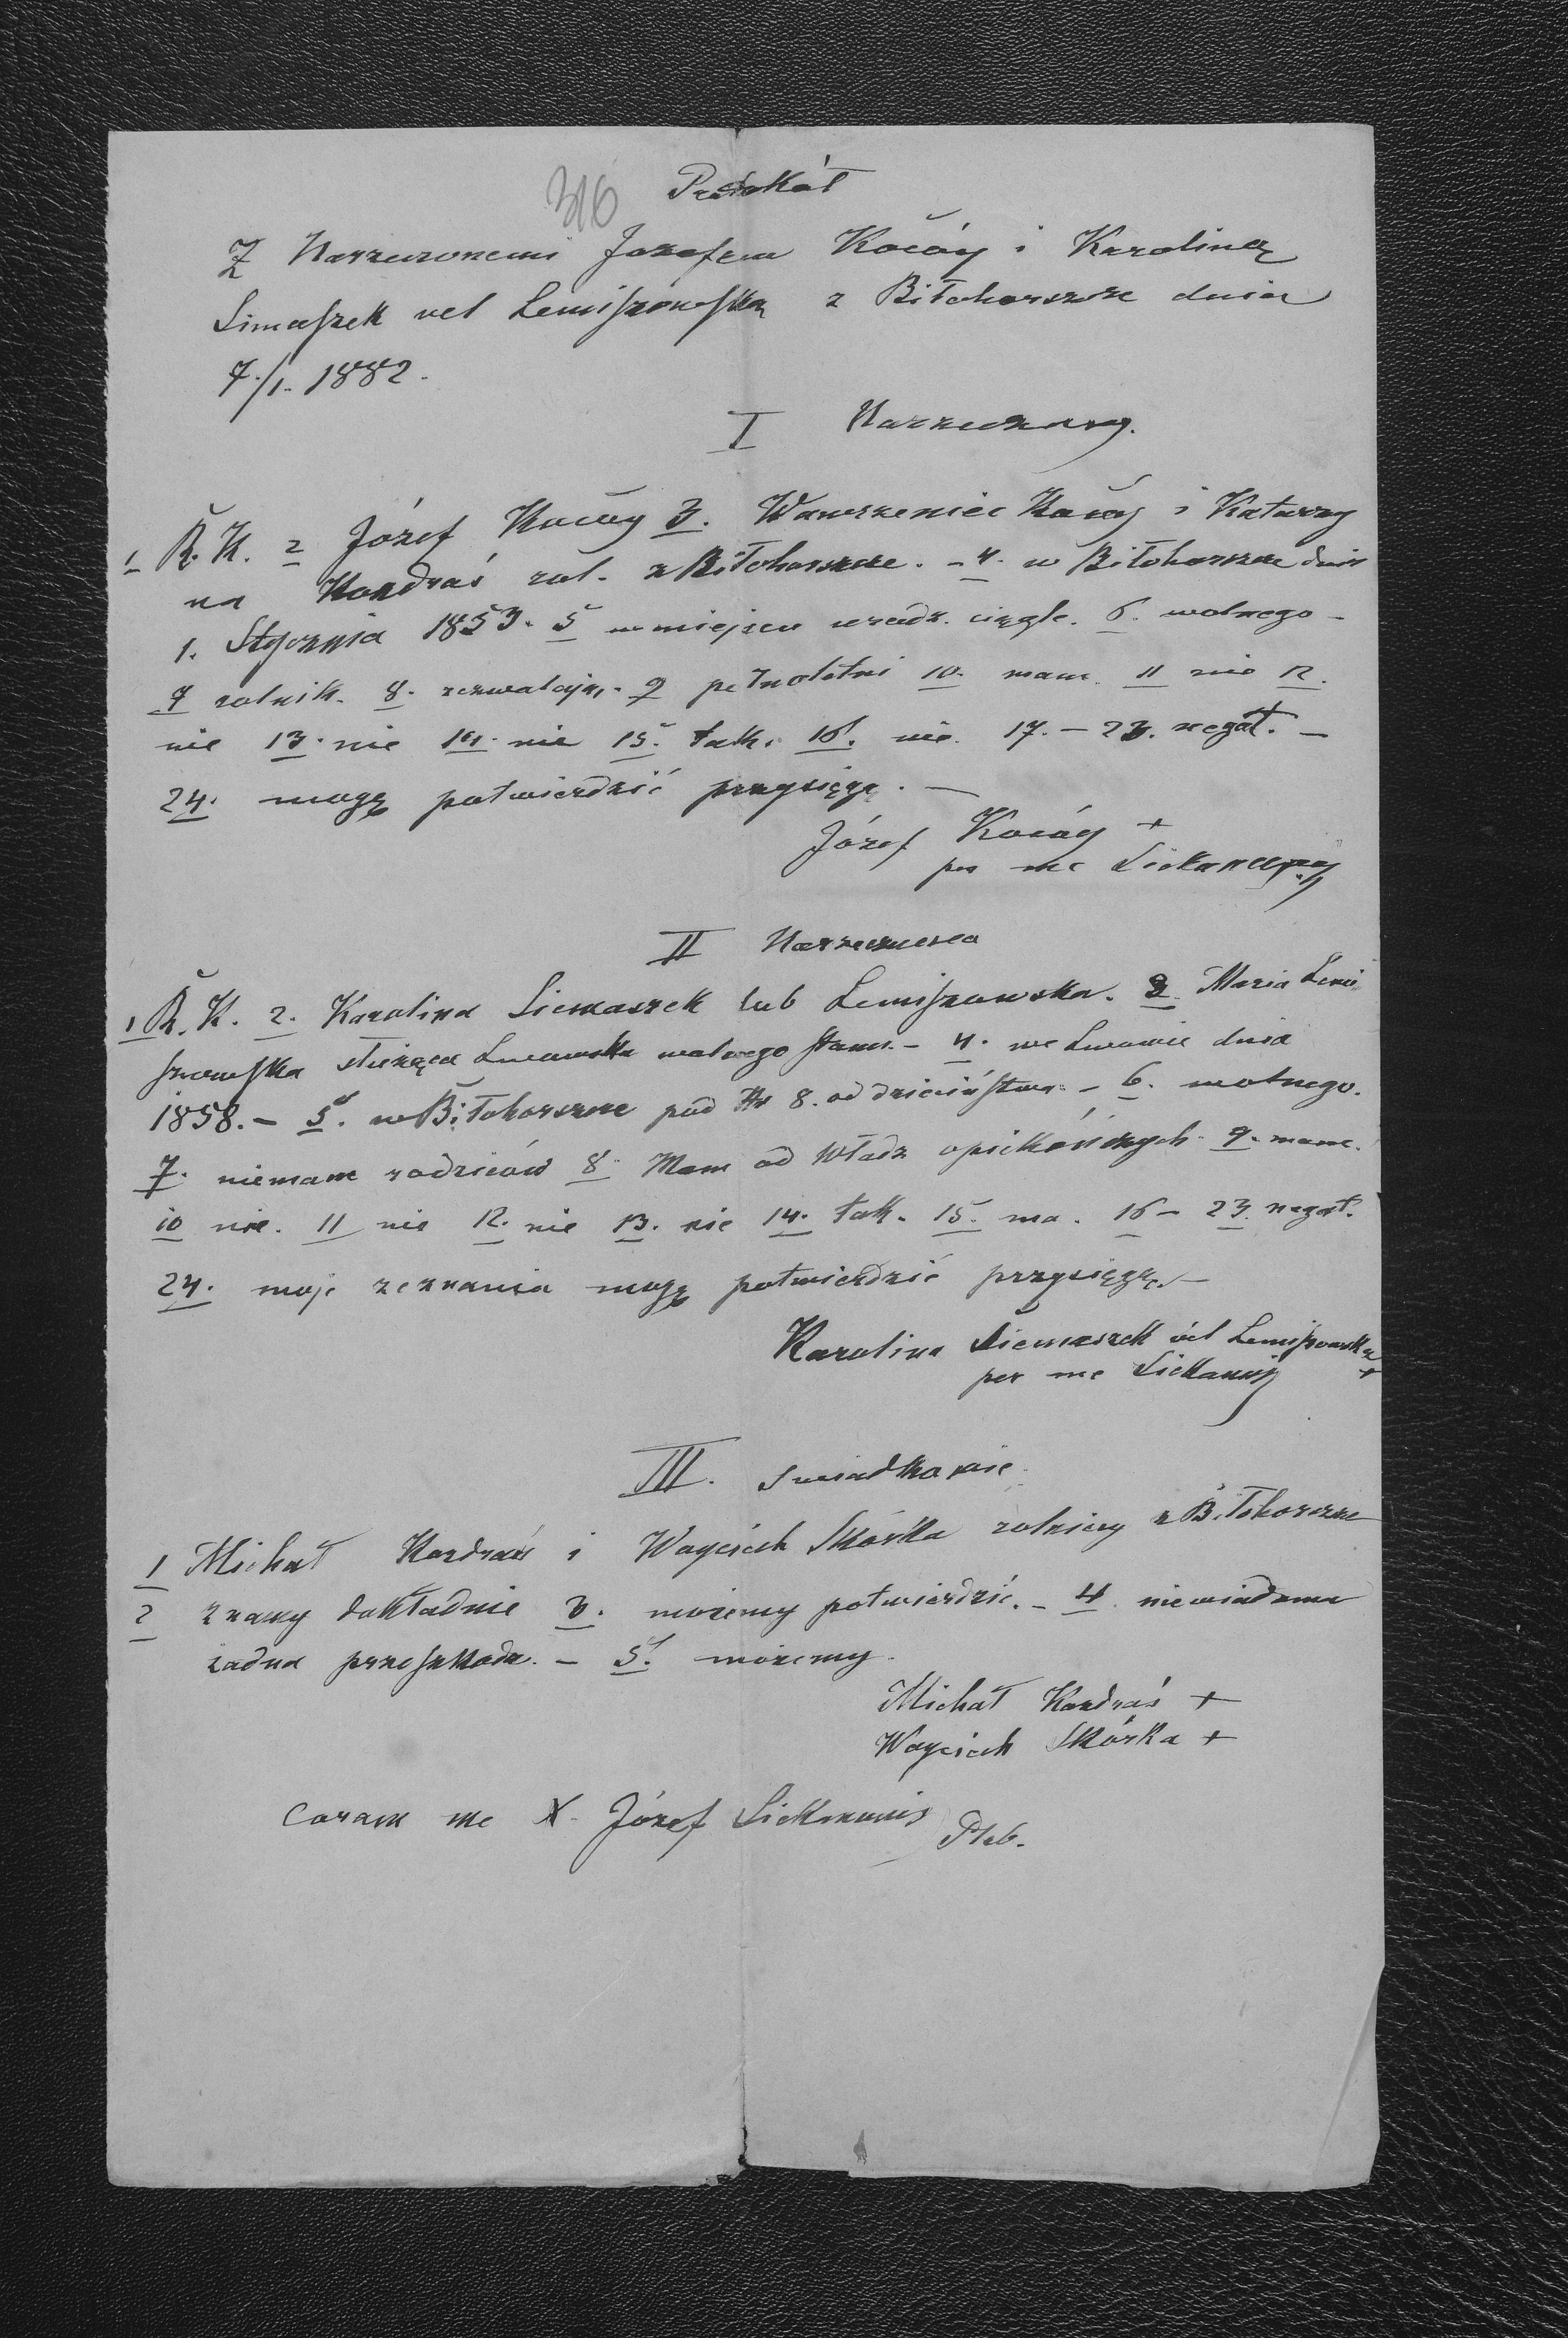 316 Protokół
Z Narzeczonemi Józefem Kocáy i Karoliną
Simaszek vel Lemiszowską z Biłohorszcze dnia
7./1. 1882.
I Narzeczony.
1 R. K. 2 Józef Kocáy 3. Wawrzeniec Kocáy i Katarzy
na Kondraś rol. z Biłohorszcze. - 4. w Biłohorszcze dnia
1. Stycznia 1853. 5 w miejscu urodz. ciągle. 6. wolnego -
7 rolnik. 8. zezwalają. 9 pełnoletni 10. mam. 11 nie 12.
nie 13. nie 14. nie 15. tak. 16. nie. 17. - 23. negat. -
24. mogę potwierdzić przysięgą. -
Józef Kocáy +
per me
II Narzeczona
1 R. K. 2. Karolina Siemaszek lub Lemiszowska. 3. Maria Lemi
szowska służąca Lwowska wolnego stanu. - 4. we Lwowie dnia
1858. - 5. w Biłohorszcze pod Nr 8. od dzieciństwa. - 6. wolnego.
7. niemam rodziców 8. Mam od Władz opiekóńczych. 9. mam.
10 nie. 11 nie 12. nie 13. nie 14. tak. 15. ma. 16 - 23. negat.
24. moje zeznania mogę potwierdzić przysięgą. -
Karolina Siemaszek vel Lemiszowska
per me +
III. Swiadkowie
1 Michał Kondraś i Woyciech Skórka rolnicy z Biłohorszcze
2 znamy dokładnie 3. możemy potwierdzić. - 4. niewiadoma
żadna przeszkoda. - 5. możemy.
Michał Kondraś +
Woyciech Skórka +
Coram me X. Józef Pleb.